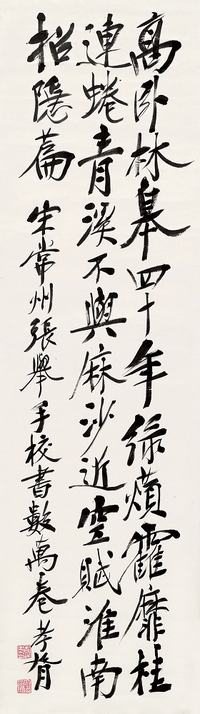 高卧林皋四十年綠薠靃靡桂
連蜷青溪不與麻沙近空賦淮南
招隱篇 宋常州張舉手校書數萬卷 孝胥